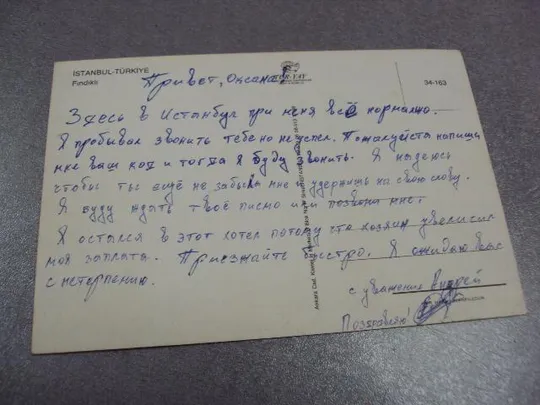 İSTANBUL-TÜRKİYE
Fındıklı
34-163
Привет, Оксана!
Здесь в Истанбул при меня всё нормално.
Я пробывал звонить тебе но не успел. Пожалуйста напиши
мне ваш код и тогда я буду звонить. Я надеюсь
чтобы ты ещё не забыла мне и удержишь на свою слову.
Я буду ждать твоё писмо или позвони мне
Я остался в этот хотел потому что хозяин увелисил
моя заплата. Приезжайте быстро. Я ожидаю вас
с нетерпению.
с уважения
Поздравлю!